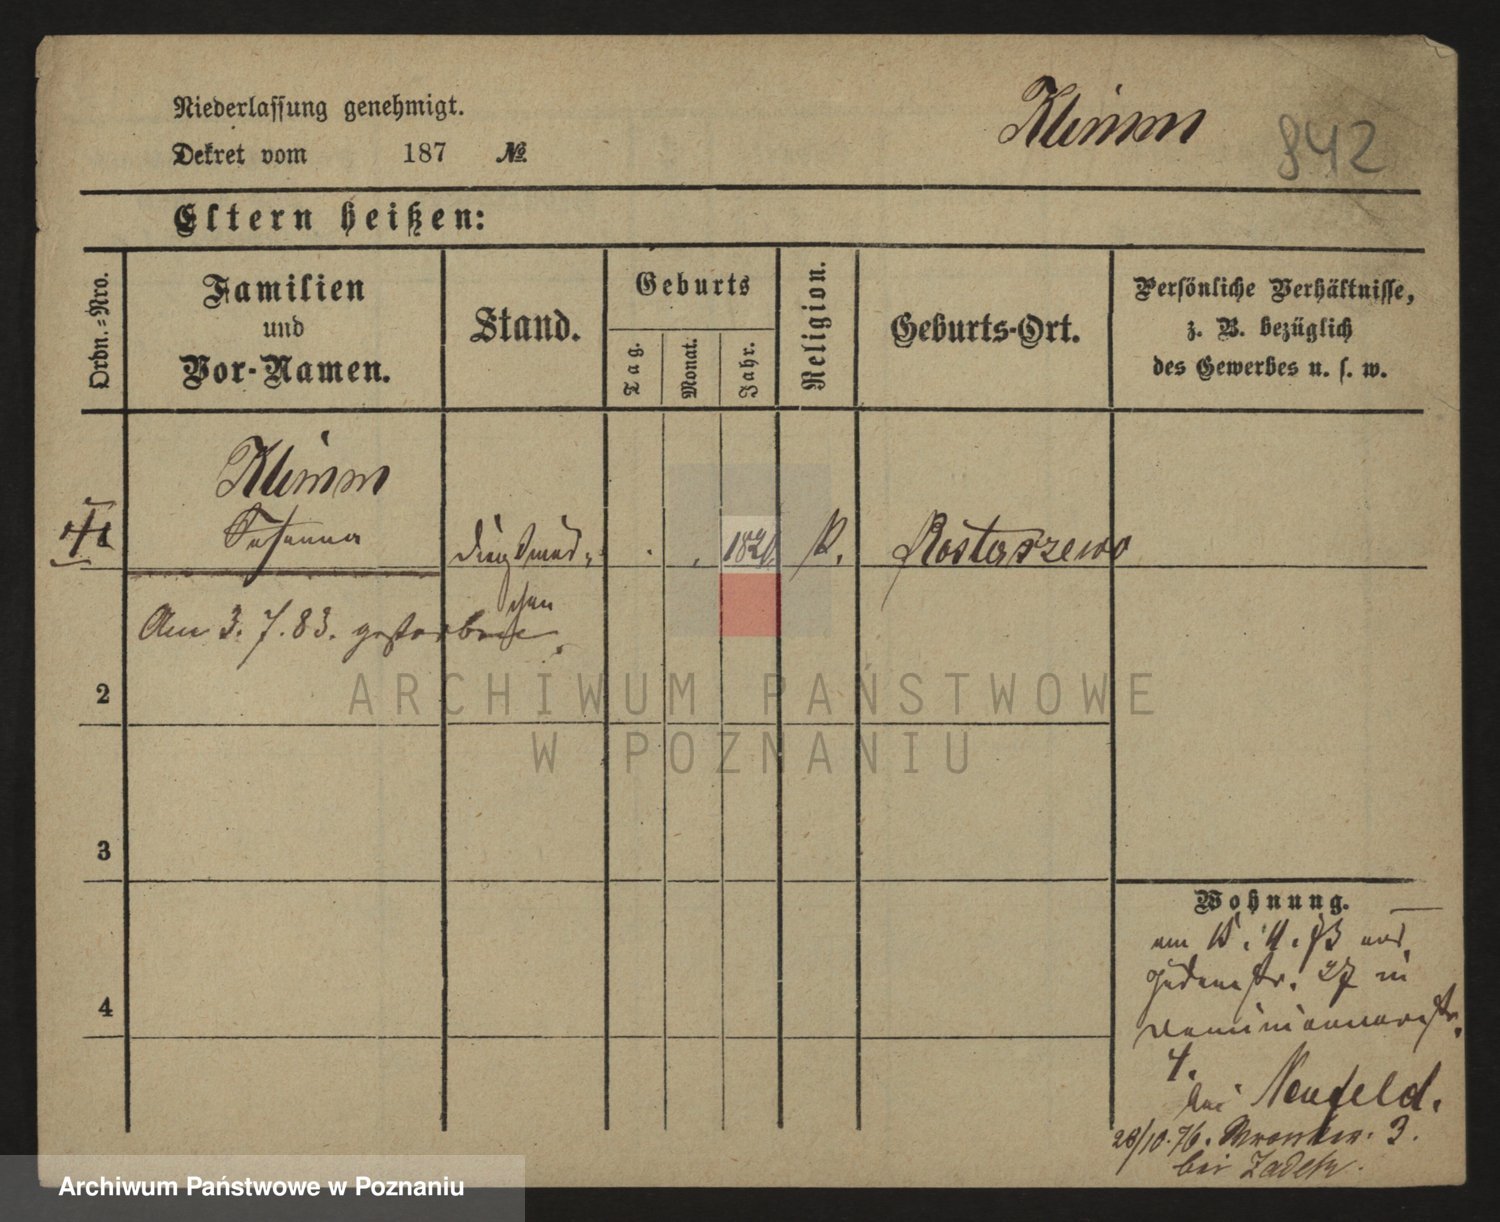 Niederlassung genehmigt.
Dekret vom 187 №
Klimm
842
Eltern heißen:
Ordn.-Nro.
Familien
und
Vor-Namen.
Stand.
Geburts
Tag.
Monat.
Jahr.
Religion.
Geburts-Ort.
Persönliche Verhältnisse,
z. B. bezüglich
des Gewerbes u. s. w.
Klimm
Susanna
Dienstmäd-
chen
K.
Rostarzewo
Am 3.7.83. gestorben.
2
3
4
Wohnung.
am
Judenstr. 27 in
Dominicanerstr.
4.
bei Neufeld.
28/10.76. Wronker. 3.
bei Zadek.
ARCHIWUM PAŃSTWOWE
W POZNANIU
Archiwum Państwowe w Poznaniu